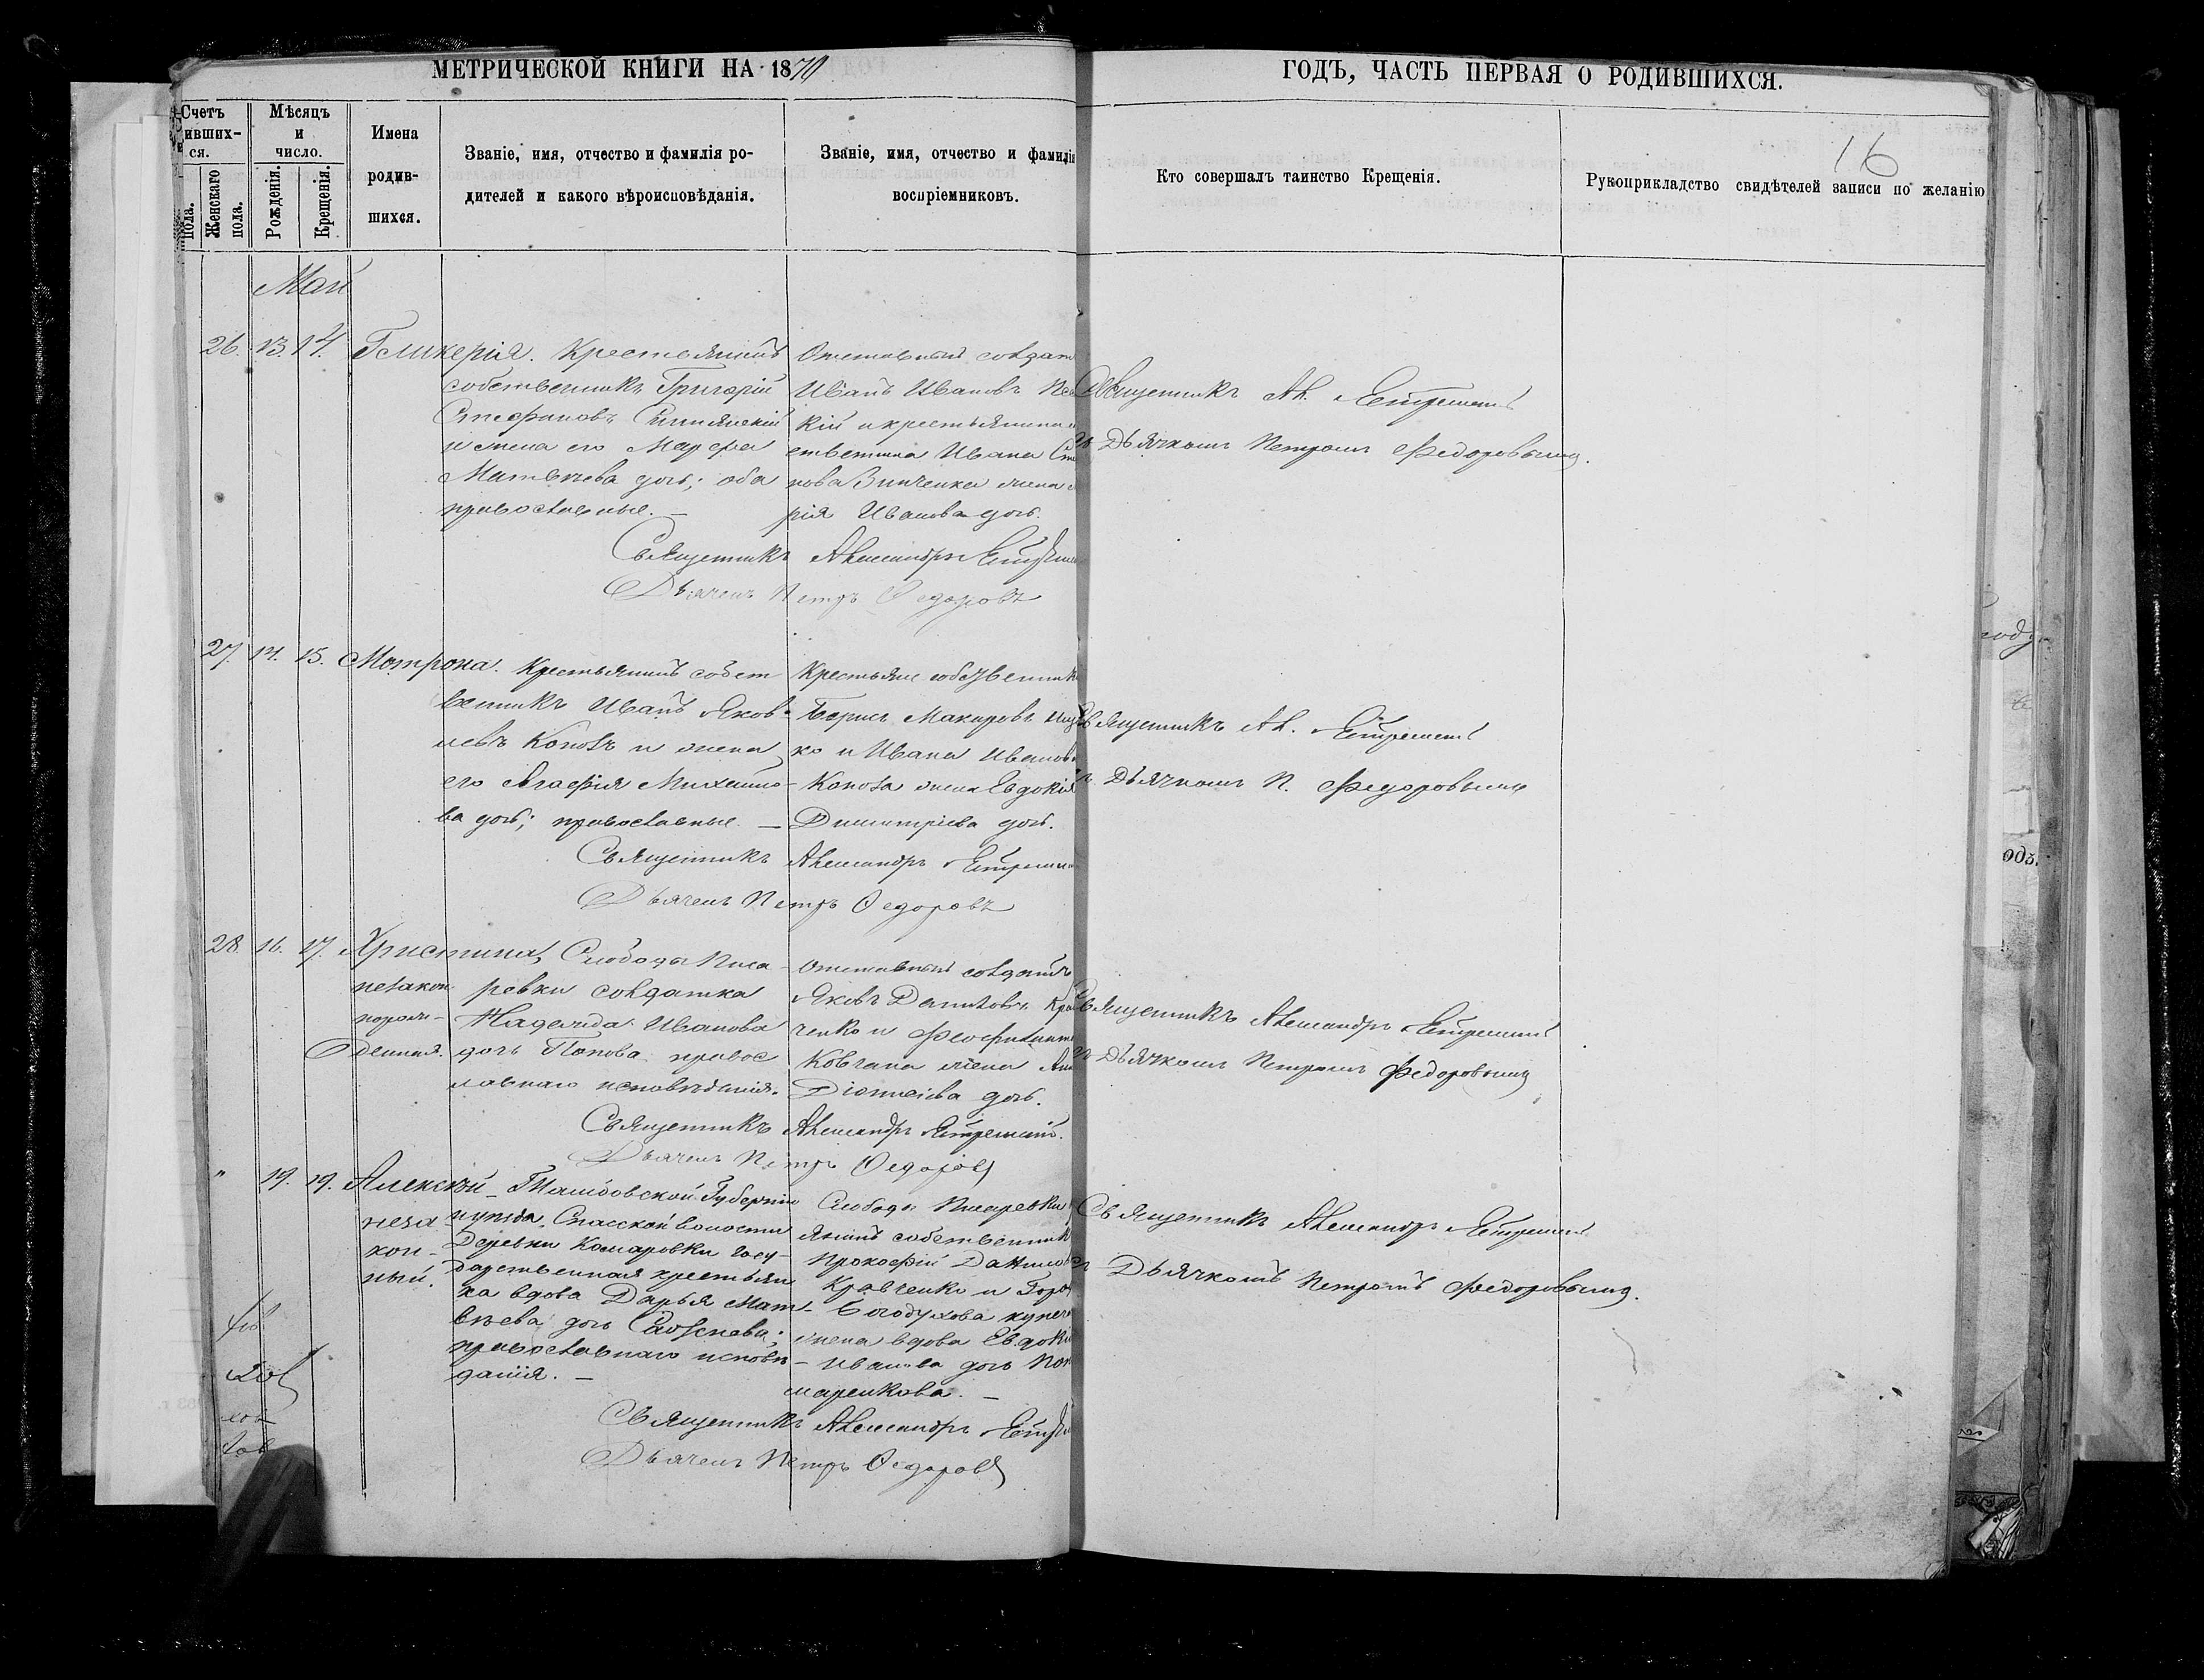 МЕТРИЧЕСКОЙ КНИГИ НА 1870
ГОДЪ, ЧАСТЬ ПЕРВАЯ О РОДИВШИХСЯ.
16
Счетъ
ивших-
ся.
пола.
Женскаго
пола.
Мѣсяцъ
и
число.
Рожденія.
Крещенія.
Имена
родив-
шихся.
Званіе, имя, отчество и фамилія ро-
дителей и какого вѣроисповѣданія.
Званіе, имя, отчество и фамилія
воспріемниковъ.
Кто совершалъ таинство Крещенія.
Рукоприкладство свидѣтелей записи по желанію
Май
26. 13. 14. Гликерія. Крестьянинъ
собственникъ Григорій
Стефановъ
и жена его Марфа
Матвѣева дочь; оба
православные. —
Отставный солдат
Иванъ Ивановъ
кій и крестьянина
ственника Ивана
нова Зинченка жена
рія Иванова дочь.
Священникъ Александръ
Дьячекъ Петръ Федоровъ
Священникъ Ал.
Дьячкомъ Петромъ Федоровымъ.
27. 14. 15. Мотрона. Крестьянинъ собст
венникъ Иванъ Яков-
левъ Копозъ и жена
его Агафія Михайло-
ва дочь; православные. —
Крестьяне собственник
Борисъ Макаровъ
ко и Ивана Иванов
Копоза жена Евдокія
Димитріева дочь.
Священникъ Александръ
Дьячекъ Петръ Федоровъ
Священникъ Ал.
Дьячкомъ П. Федоровымъ
28. 16. 17. Христина, Слободы Писа-
незакон ревки солдатка
норож- Надежда Иванова
денная. дочь Попова правос
лавнаго исповѣданія.
Отставный солдатъ
Яковъ Даниловъ Кра
ченко и
Ковчана жена
Діонисіева дочь.
Священникъ Александръ
Дьячекъ Петръ Федоровъ
Священникъ Александръ
Дьячкомъ Петромъ Федоровымъ
" 19. 19. Алексѣй — Тамбовской Губерніи
неза уѣзда, Спасской волости
кон- Деревни Комаровки госу-
ный. дарственная крестьян
ка вдова Дарья Мат-
вѣева дочь
православнаго исповѣ-
данія. —
Слободы Писаревки
янинъ собственник
Прокофій Данилов
Кравченко и Горо
Богодухова купеч
жена вдова Евдокі
Иванова дочь Поно
маренкова. —
Священникъ Александръ
Дьячекъ Петръ Федоровъ
Священникъ Александръ
Дьячкомъ Петромъ Федоровымъ.